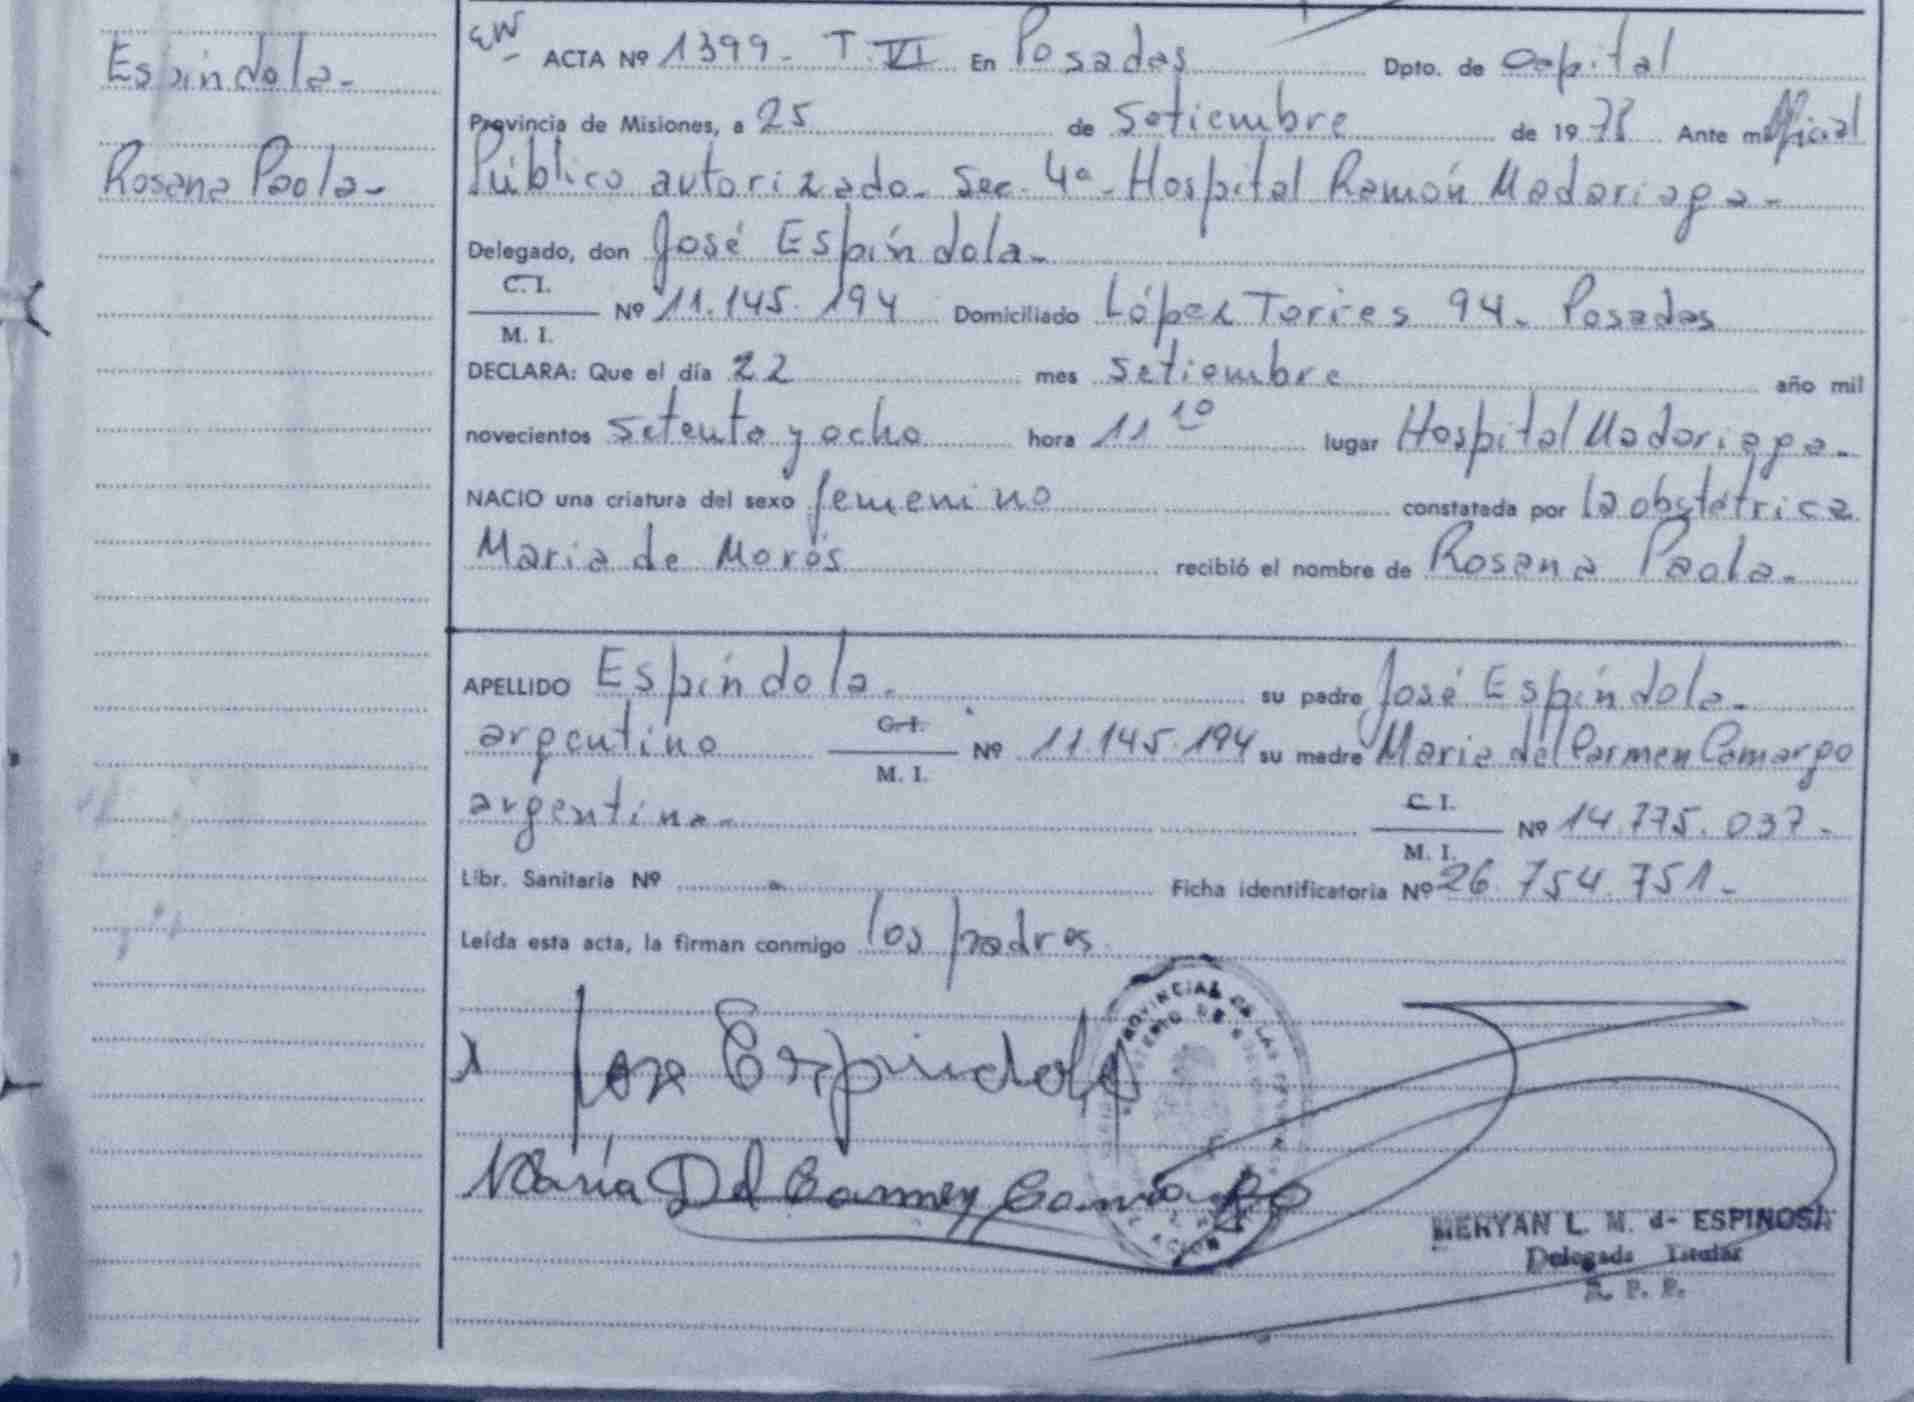 Espíndola-
Rosana Paola-
EW
ACTA Nº 1399- T. VI En Posadas Dpto. de Capital
Provincia de Misiones, a 25 de Setiembre de 1978 Ante mi Oficial
Público autorizado- Sec. 4ª- Hospital Ramón Madariaga-
Delegado, don José Espíndola-
C. I.
Nº 11.145.194 Domiciliado López Torres 94- Posadas
M. I.
DECLARA: Que el día 22 mes setiembre año mil
novecientos setenta y ocho hora 11 10 lugar Hospital Madariaga-
NACIO una criatura del sexo femenino constatada por la obstétrica
Maria de Morós recibió el nombre de Rosana Paola-
APELLIDO Espíndola- su padre José Espíndola-
argentino C. I. Nº 11.145.194 su madre Maria del Carmen Camargo
M. I.
argentina- C. I. Nº 14.775.037-
M. I.
Libr. Sanitaria Nº - Ficha identificatoria Nº 26.754.751-
Leída esta acta, la firman conmigo los padres.
x Jose Espindola
María Del Carmen Camargo
MERYAN L. M. d- ESPINOSA
Delegada Titular
R. P. P.